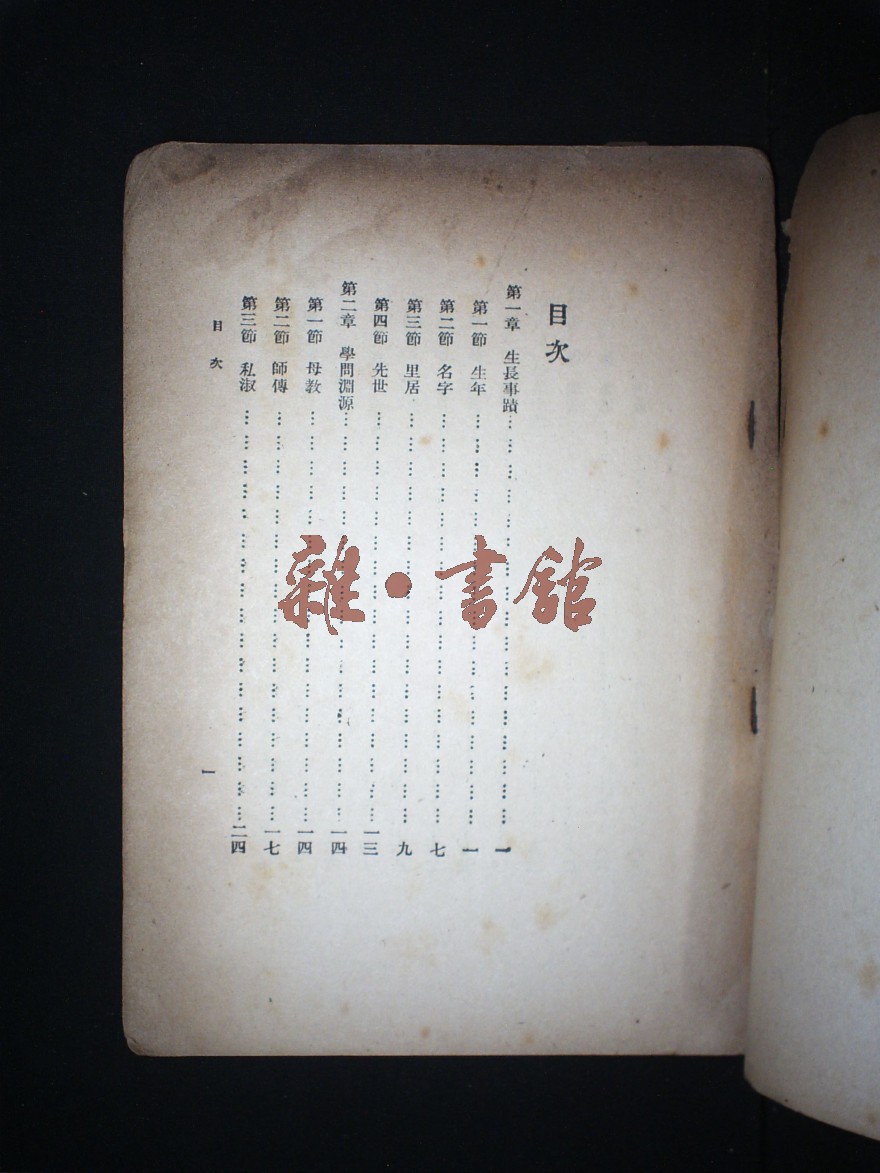 目次
第一章　生長事蹟………………………………………………一
第一節　生年………………………………………………一
第二節　名字………………………………………………七
第三節　里居………………………………………………九
第四節　先世………………………………………………一三
第二章　學問淵源………………………………………………一四
第一節　母教………………………………………………一四
第二節　師傳………………………………………………一七
第三節　私淑………………………………………………二四
目次
一
雜·書館